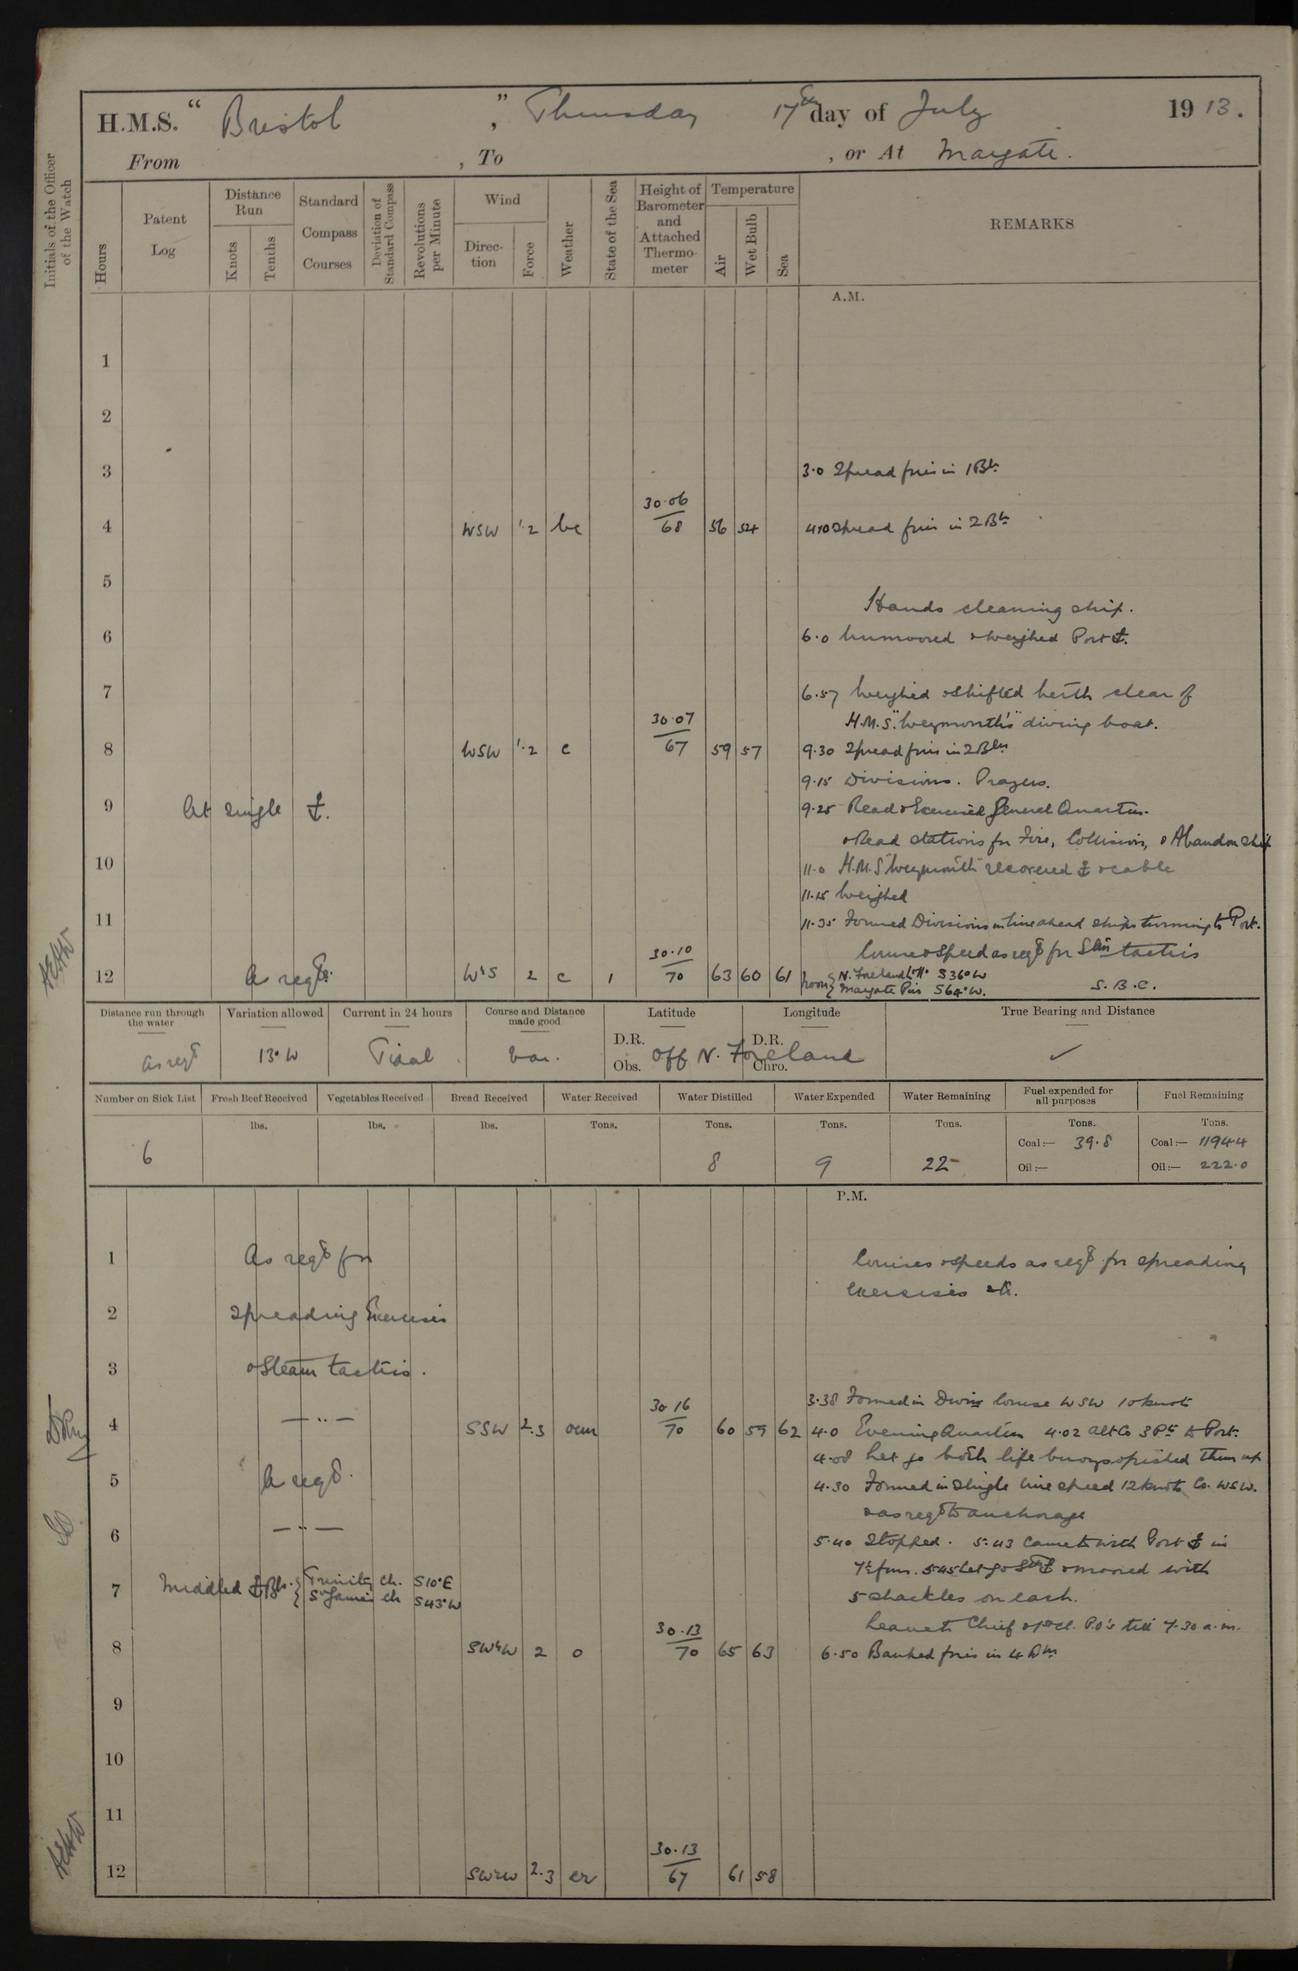 H.M.S. “ Bristol ”, Thursday 17th day of July 1913.
From , To , or At Margate.
Initials of the Officer of the Watch
Hours
Patent Log
Distance Run
Knots
Tenths
Standard Compass Courses
Deviation of Standard Compass
Revolutions per Minute
Wind
Direction
Force
Weather
State of the Sea
Height of Barometer and Attached Thermometer
Temperature
Air
Wet Bulb
Sea
REMARKS
A.M.
1
2
3 3.0 Spread fires in 1 Blr
4 WSW 1.2 bc 30.06 68 56 54 4.10 Spread fires in 2 Blrs
5
Hands cleaning ship.
6 6.0 Unmoored & weighed Port ⚓.
7 6.57 Weighed & shifted berth clear of
H.M.S. "Weymouth's" diving boat.
8 WSW 1.2 c 30.07 67 59 57 9.30 Spread fires in 2 Blrs
9.15 Divisions. Prayers.
9 At single ⚓. 9.25 Read & Exercised General Quarters.
& Read stations for Fire, Collision, & Abandon Ship
10 11.0 H.M.S "Weymouth" recovered ⚓ & cable
11.15 Weighed
11 11.35 Formed Divisions in line ahead ships turning to Port.
Course & Speed as reqd for Stm tactics
12 As reqd. W'S 2 c 1 30.10 70 63 60 61 Noon { N. Foreland Lt Ho S36°W
Margate Pier S64°W. S.B.C.
AEHW
Distance run through the water
as reqd
Variation allowed
13°W
Current in 24 hours
Tidal
Course and Distance made good
Var.
Latitude
D.R.
Obs.
Longitude
D.R.
Chro.
Off N. Foreland
True Bearing and Distance
✓
Number on Sick List
6
Fresh Beef Received
lbs.
Vegetables Received
lbs.
Bread Received
lbs.
Water Received
Tons.
Water Distilled
Tons.
8
Water Expended
Tons.
9
Water Remaining
Tons.
22
Fuel expended for all purposes
Tons.
Coal:— 39.8
Oil:—
Fuel Remaining
Tons.
Coal:— 1194.4
Oil:— 222.0
P.M.
1 As reqd for Courses & speeds as reqd for spreading
exercises &c.
2 Spreading Exercises
3 & Steam tactics.
3.38 Formed in Divns Course WSW 10 knots
4 — " — SSW 2.3 30.16 70 60 59 62 4.0 Evening Quarters 4.02 alt Co 3 Pts to Port.
4.08 Let go both life buoys & picked them up
5 As reqd. 4.30 Formed in Single line speed 12 knots Co. WSW.
& as reqd to anchorage
6 — " — 5.40 Stopped. 5.43 Came to with Port ⚓ in
7½ fms. 5.45 Let go Stbd ⚓ & moored with
7 Middled ⚓ Bgs. { Trinity Ch. S10°E
St James Ch S43°W
5 shackles on each.
Leave to Chief & 1st Cl. P.O's till 7.30 a.m.
8 SW'W 2 o 30.13 70 65 63 6.50 Banked fires in 4 Blrs
9
10
11
12 SW'W 2.3 cr 30.13 67 61 58
AEHW